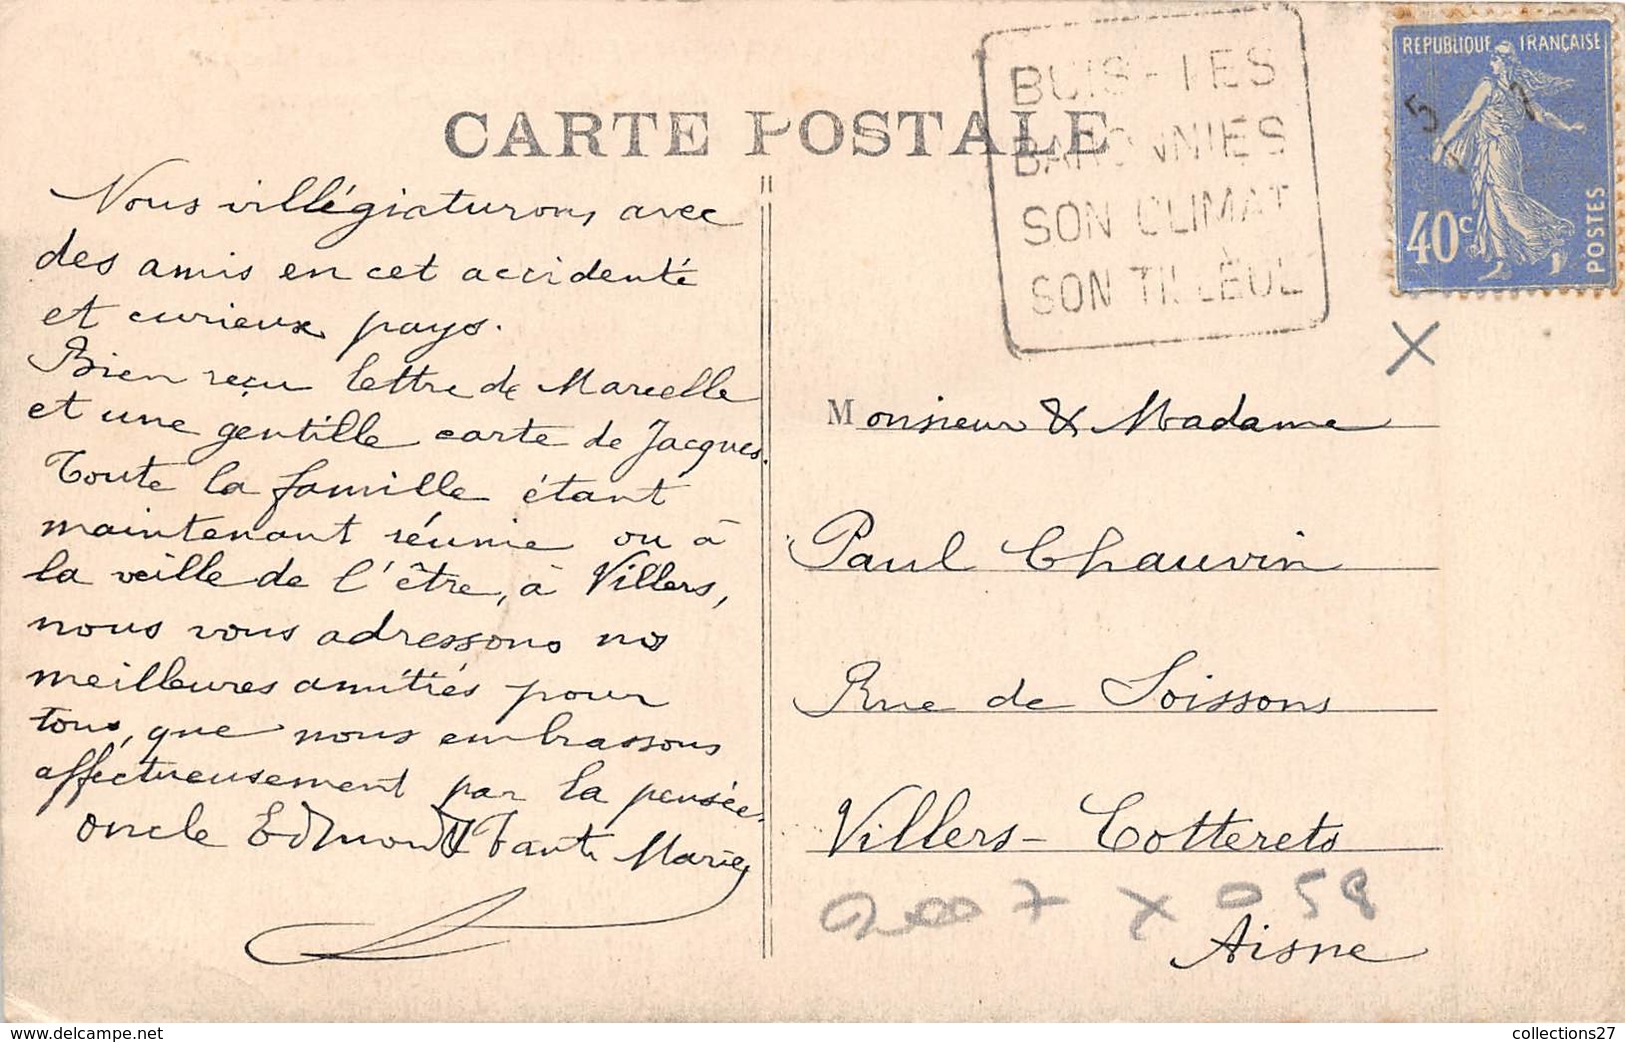 CARTE POSTALE
BUIS-LES
BARONNIES
SON CLIMAT
SON TILLEUL
REPUBLIQUE FRANÇAISE
40c
POSTES
Nous villégiaturons avec
des amis en cet accidenté
et curieux pays.
Bien reçu lettre de Marcelle
et une gentille carte de Jacques.
Toute la famille étant
maintenant réunie ou à
la veille de l'être, à Villers,
nous vous adressons nos
meilleures amitiés pour
tous, que nous embrassons
affectueusement par la pensée.
Oncle Edmond & Tante Marie
Monsieur & Madame
Paul Chauvin
Rue de Soissons
Villers-Cotterets
Aisne
X
2007 X 058
www.delcampe.net
collections27